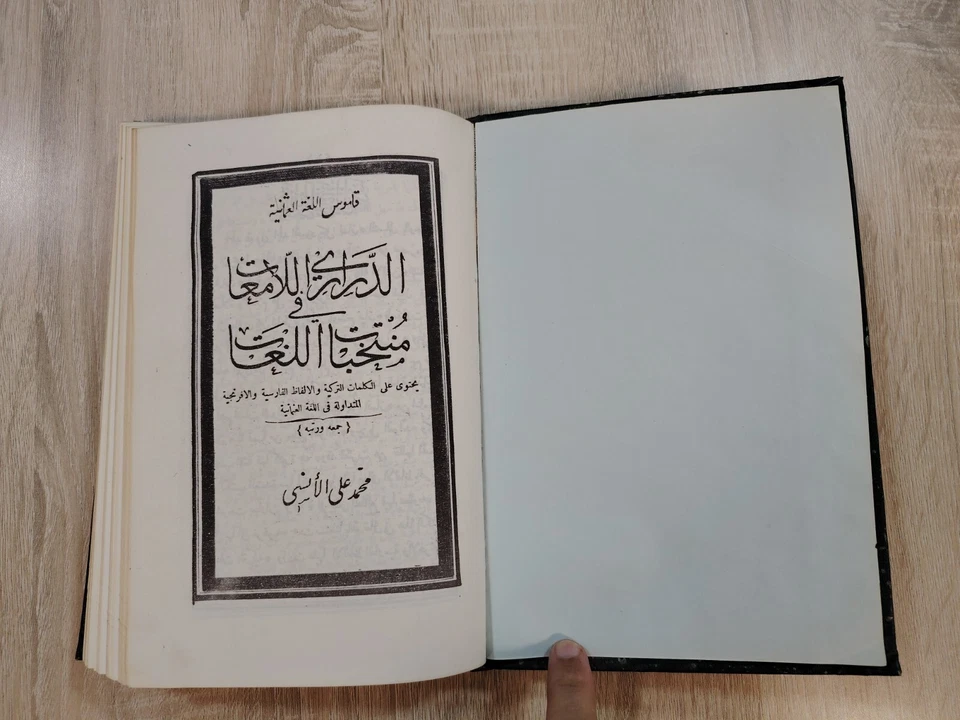 قاموس اللغة العثمانية
الدَّرَارِي اللَّامِعَات
في
مُنْتَخَبَات اللُّغَات
يحتوى على الكلمات التركية والالفاظ الفارسية والافرنجية
المتداولة فى اللغة العثمانية
{ جمعه ورتبه }
محمد على الأنسى